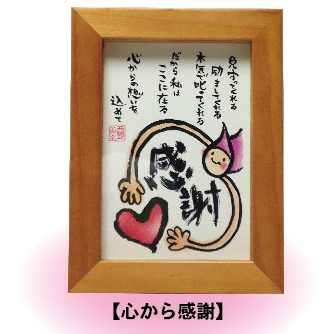 見守ってくれる
励ましてくれる
本気で叱ってくれる
だから私は
ここに在る
心からの想いを
込めて
感謝
【心から感謝】